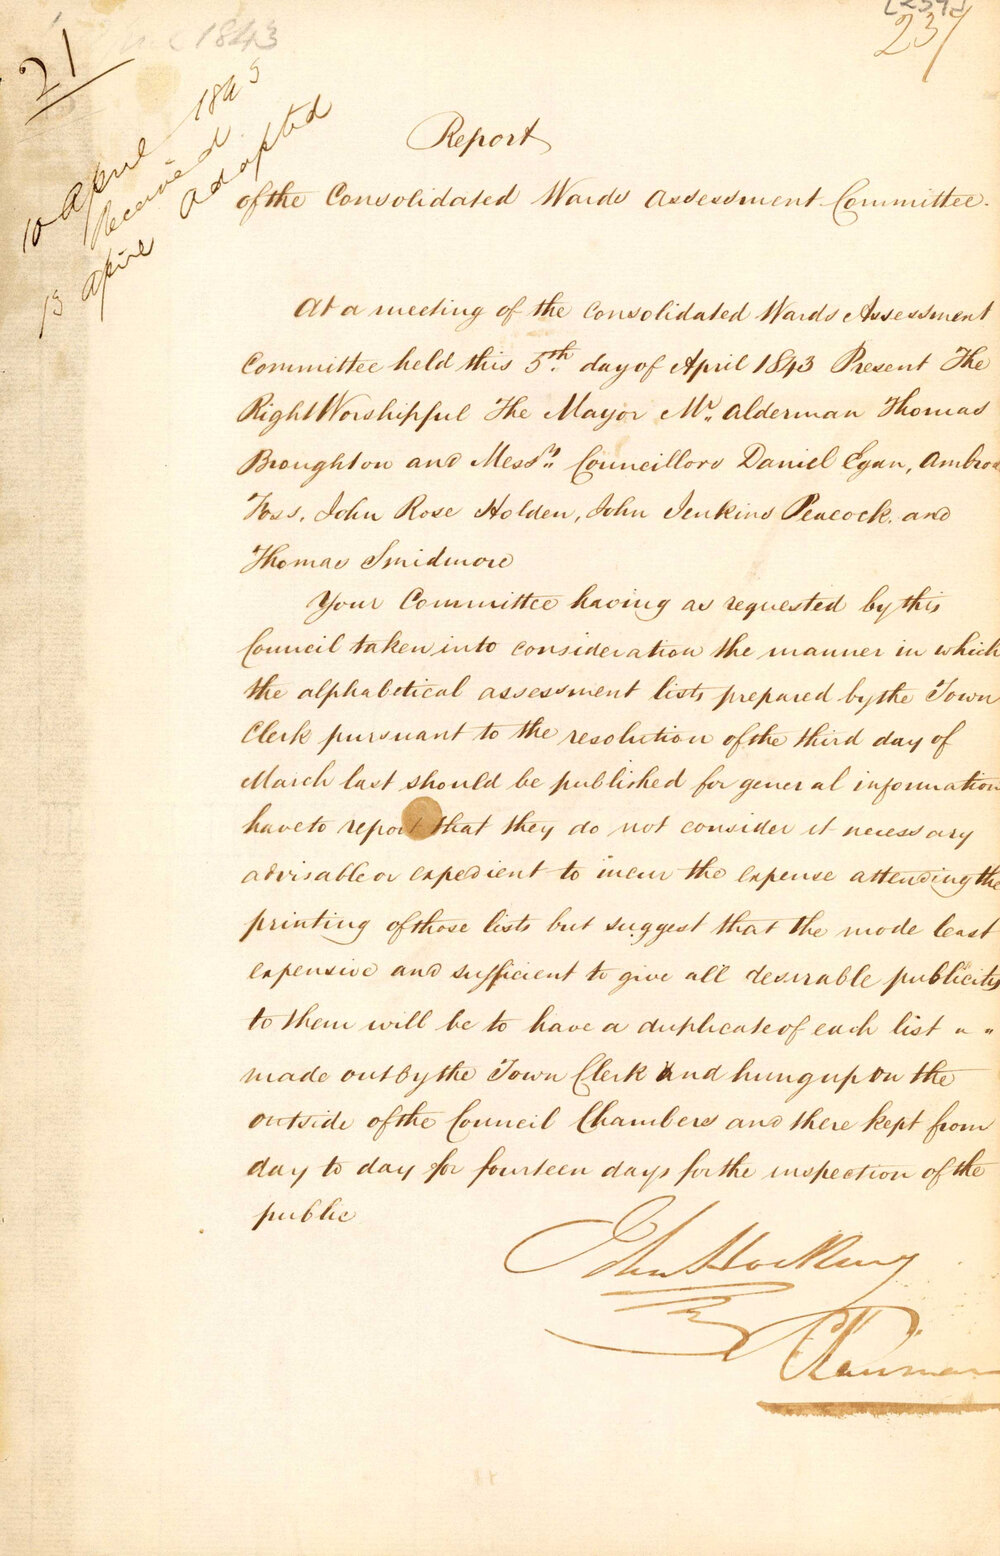 21
1843
[239]
237
10 April 1843
Received
13 April Adopted
Report
of the Consolidated Wards Assessment Committee.
At a meeting of the Consolidated Wards Assessment
Committee held this 5th day of April 1843 Present The
Right Worshipful The Mayor Mr. Alderman Thomas
Broughton and Messrs. Councillors Daniel Egan, Ambrose
Foss, John Rose Holden, John Jenkins Peacock, and
Thomas Smidmore
Your Committee having as requested by this
Council taken into consideration the manner in which
the alphabetical assessment lists prepared by the Town
Clerk pursuant to the resolution of the third day of
March last should be published for general information
have to report that they do not consider it necessary
advisable or expedient to incur the expense attending the
printing of those lists but suggest that the mode least
expensive and sufficient to give all desirable publicity
to them will be to have a duplicate of each list
made out by the Town Clerk and hung up on the
outside of the Council Chambers and there kept from
day to day for fourteen days for the inspection of the
public
John Hosking
Chairman